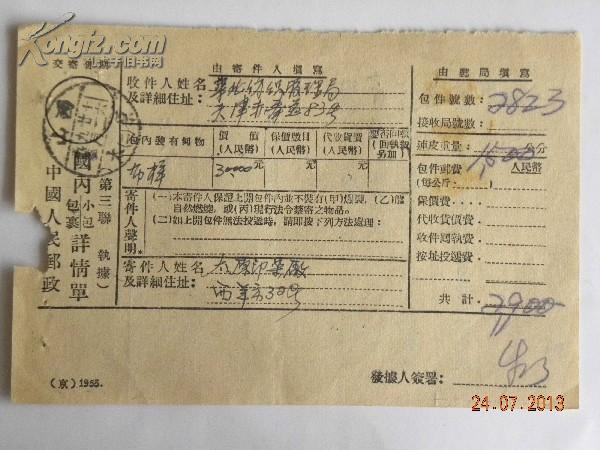 Kongfz.com
孔夫子旧书网
交寄日期
由寄件人填寫
由郵局填寫
收件人姓名
及詳細住址：
天津市
83号
包內裝有何物
價值
(人民幣)
保價數目
(人民幣)
代收貨價
(人民幣)
要否回執
(回執費
另加)
30000元
元
元
寄件人聲明
(一)本寄件人保證上開包件內並不裝有(甲)爆裂，(乙)能
自然燃燒，或(丙)現行法令禁寄之物品。
(二)如上開包件無法投遞時，請即按下列方法處理：
寄件人姓名
及詳細住址：
太原印染廠
西羊市30号
包件號數：
2823
接收局號數：
連皮重量：
公分
包件郵費
(每公斤：
人民幣
保價費：
代收貨價費：
收件回執費：
按址投遞費：
共計：
7900
發據人簽署：
(第三聯 執據)
國內小包包裹詳情單
中國人民郵政
(京)1953.
24.07.2013